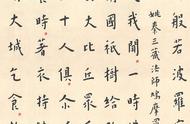 般若波羅
姚秦三藏法師鳩摩羅
我聞一時
國祇樹給
大比丘眾
十人俱尒
時著衣持
大城乞食